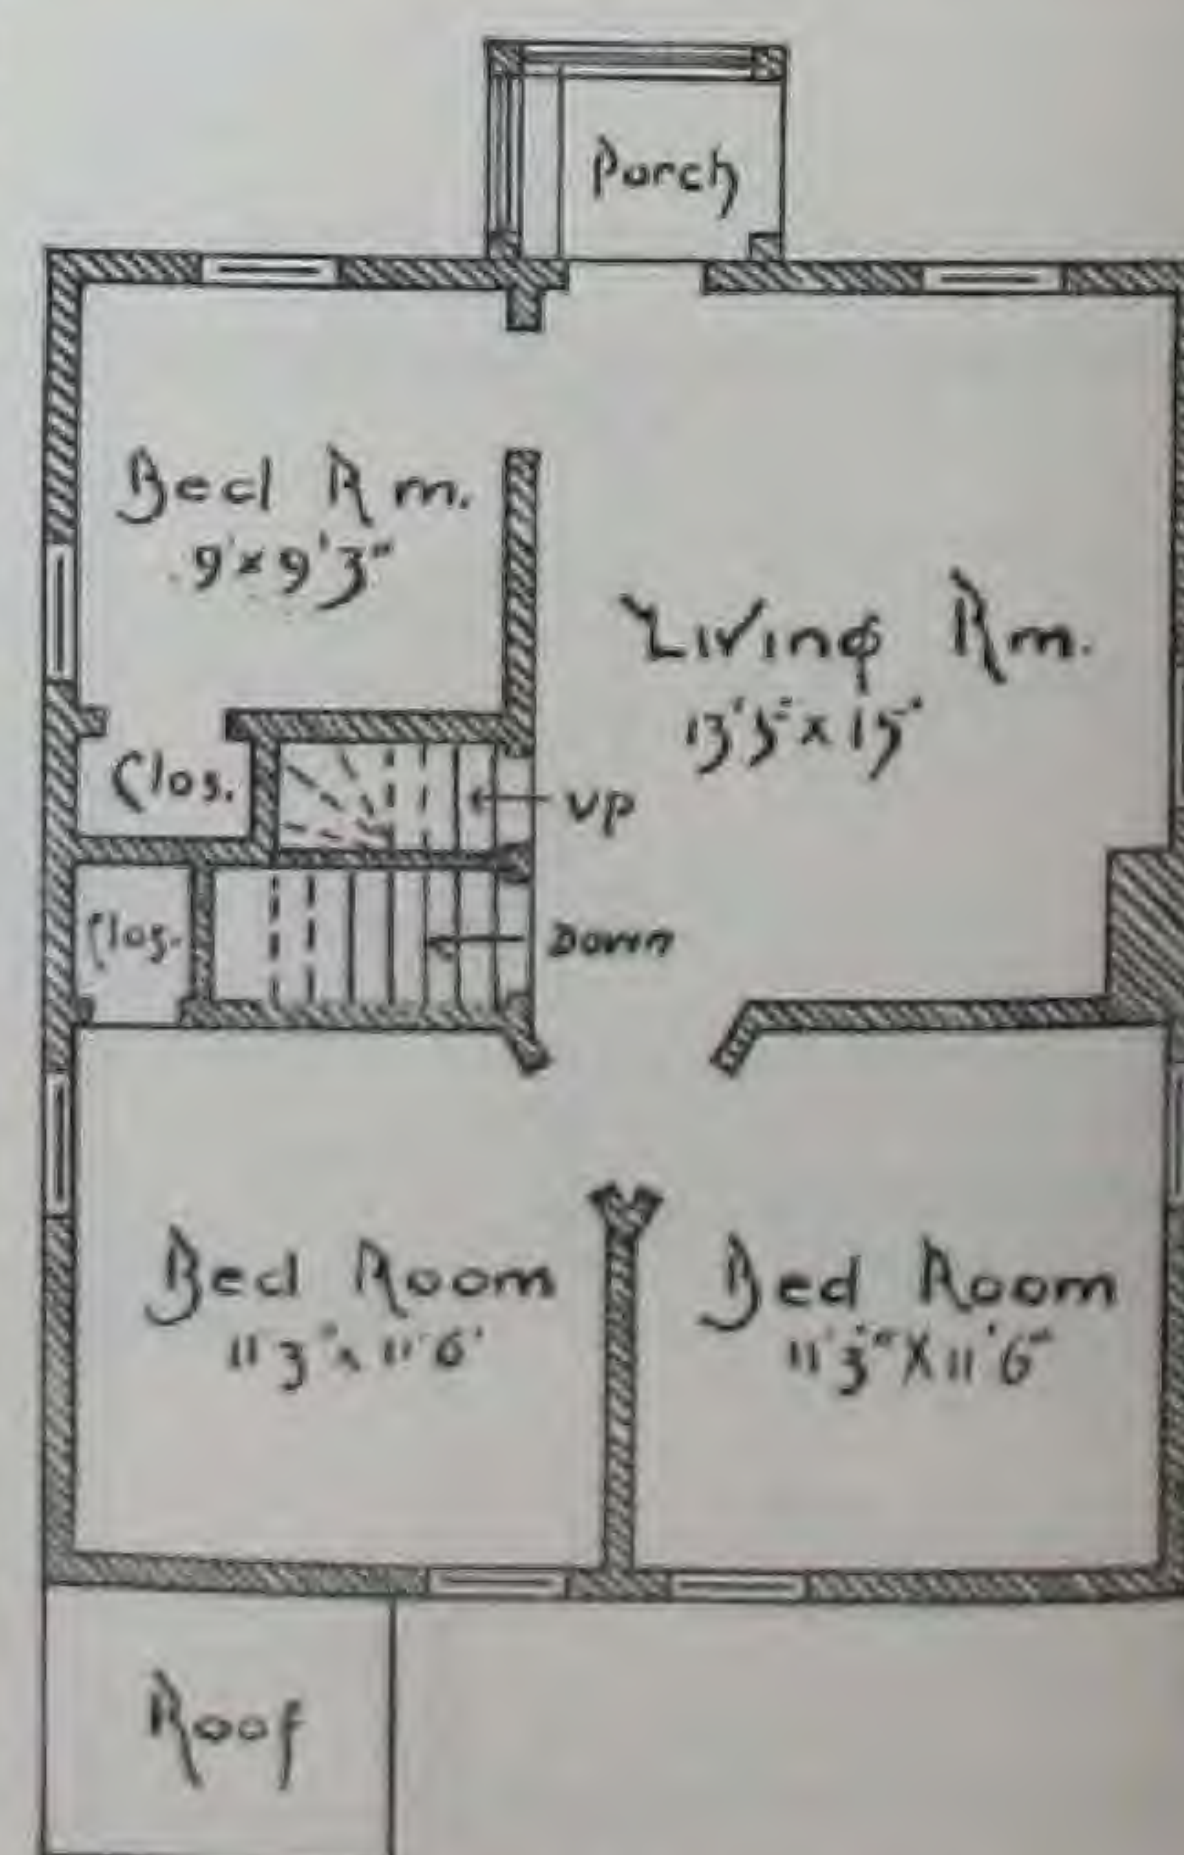 Porch
Bed Rm.
9' x 9'3"
Living Rm.
13'3" x 15'
Clos.
UP
Clos.
Down
Bed Room
11'3" x 11'6"
Bed Room
11'3" X 11'6"
Roof